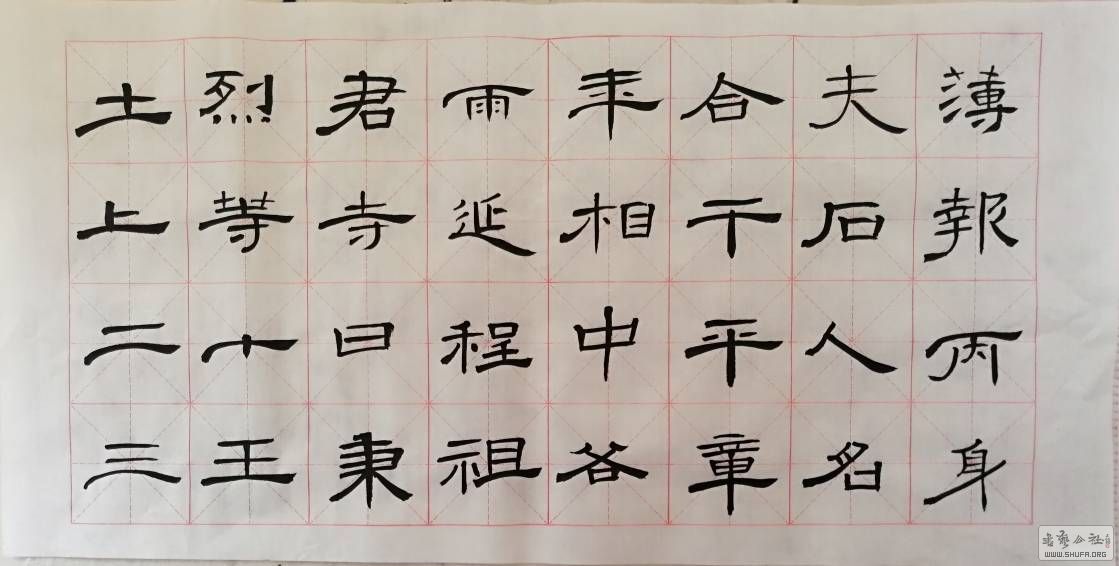 薄報丙身
夫石人名
合干平章
年相中各
雨延程祖
君寺曰秉
烈等十王
土上二三
WWW.SHUFA.ORG